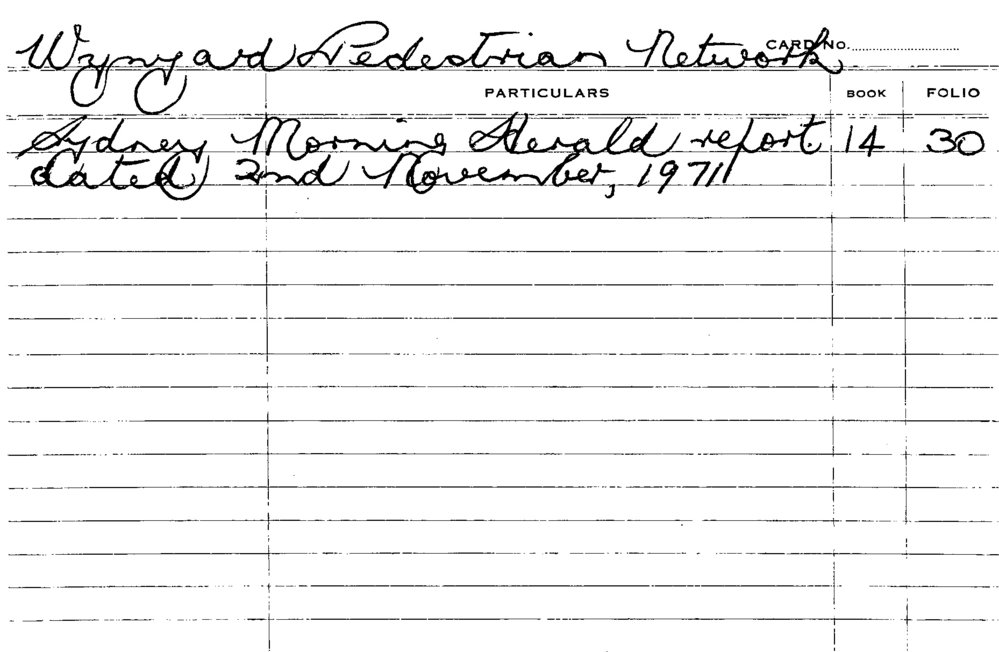 Wynyard Pedestrian Network CARD No.
PARTICULARS BOOK FOLIO
Sydney Morning Herald report 14 30
dated 2nd November, 1971